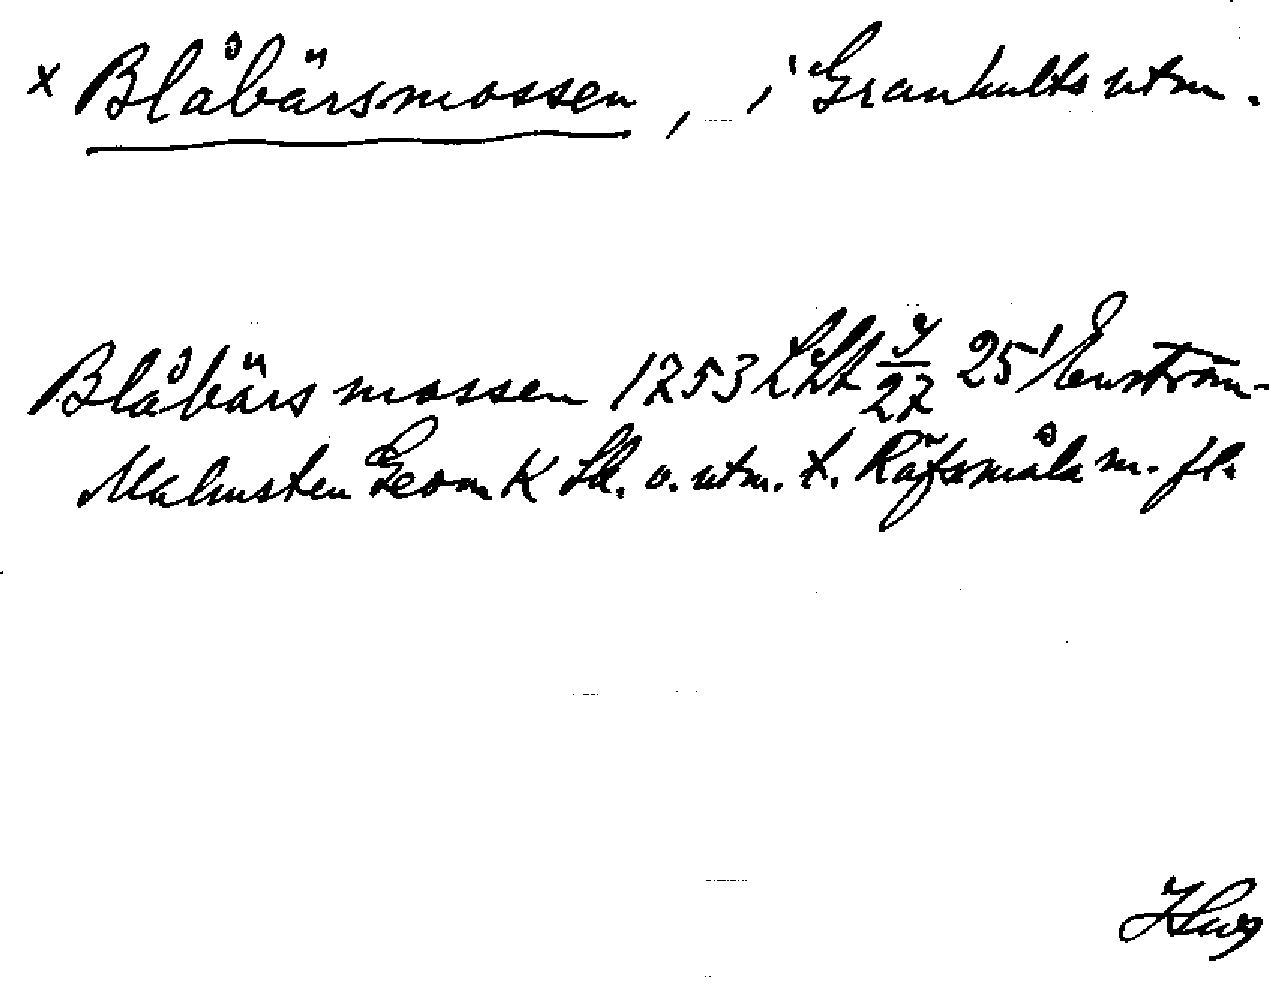 x Blåbärsmossen, i Granhults utm.
Blåbärsmossen 1753 LSA 25 Enström-
Malmsten Geom K Sk. o. utm. t. Räfsmåla m. fl.